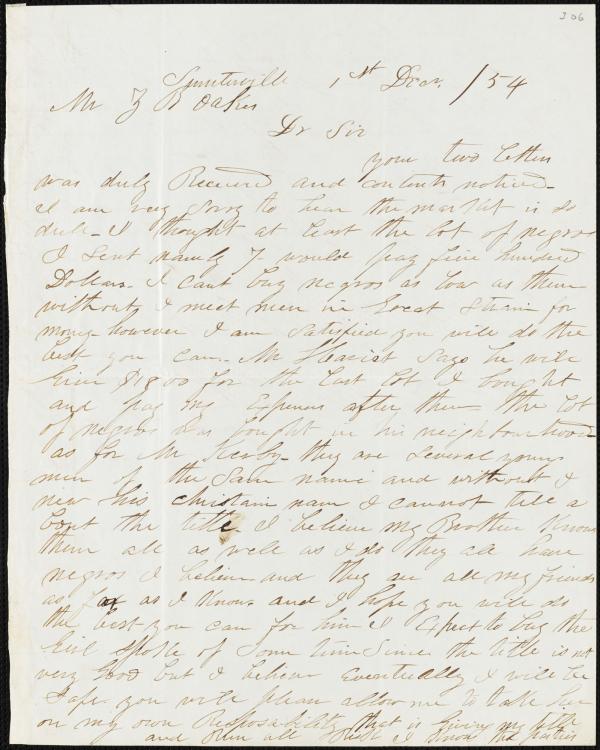 206
Sumterville 1st Decr. /54
Mr Z B Oakes
Dr Sir
your two letters
was duly Received and contents noticed
I am very Sorry to hear the market is so
dull - I thought at least the lot of negros
I Sent namely 7 would pay five hundred
Dollars. I cant buy negros as low as them
without I meet men in Great Strain for
money however I am Satisfied you will do the
best you can. Mr Says he will
Give $1800 for the last lot I bought
and pay my Expenses after them the lot
of negros was bought in his neighbourhood
as for Mr they are Several young
men of the Same name and without I
new his christain name I cannot tell a
bout the title I believe my Brother Knows
them all as well as I do they all have
negros I believe and they are all my friends
as far as I Know and I hope you will do
the best you can for him I Expect to buy the
Girl Spoke of Some time Since the title is not
very Good but I believe Eventually I will be
Safe. you will please allow me to take her
on my own Responsability that is Giving my title
and Run all Risk I Know the parties